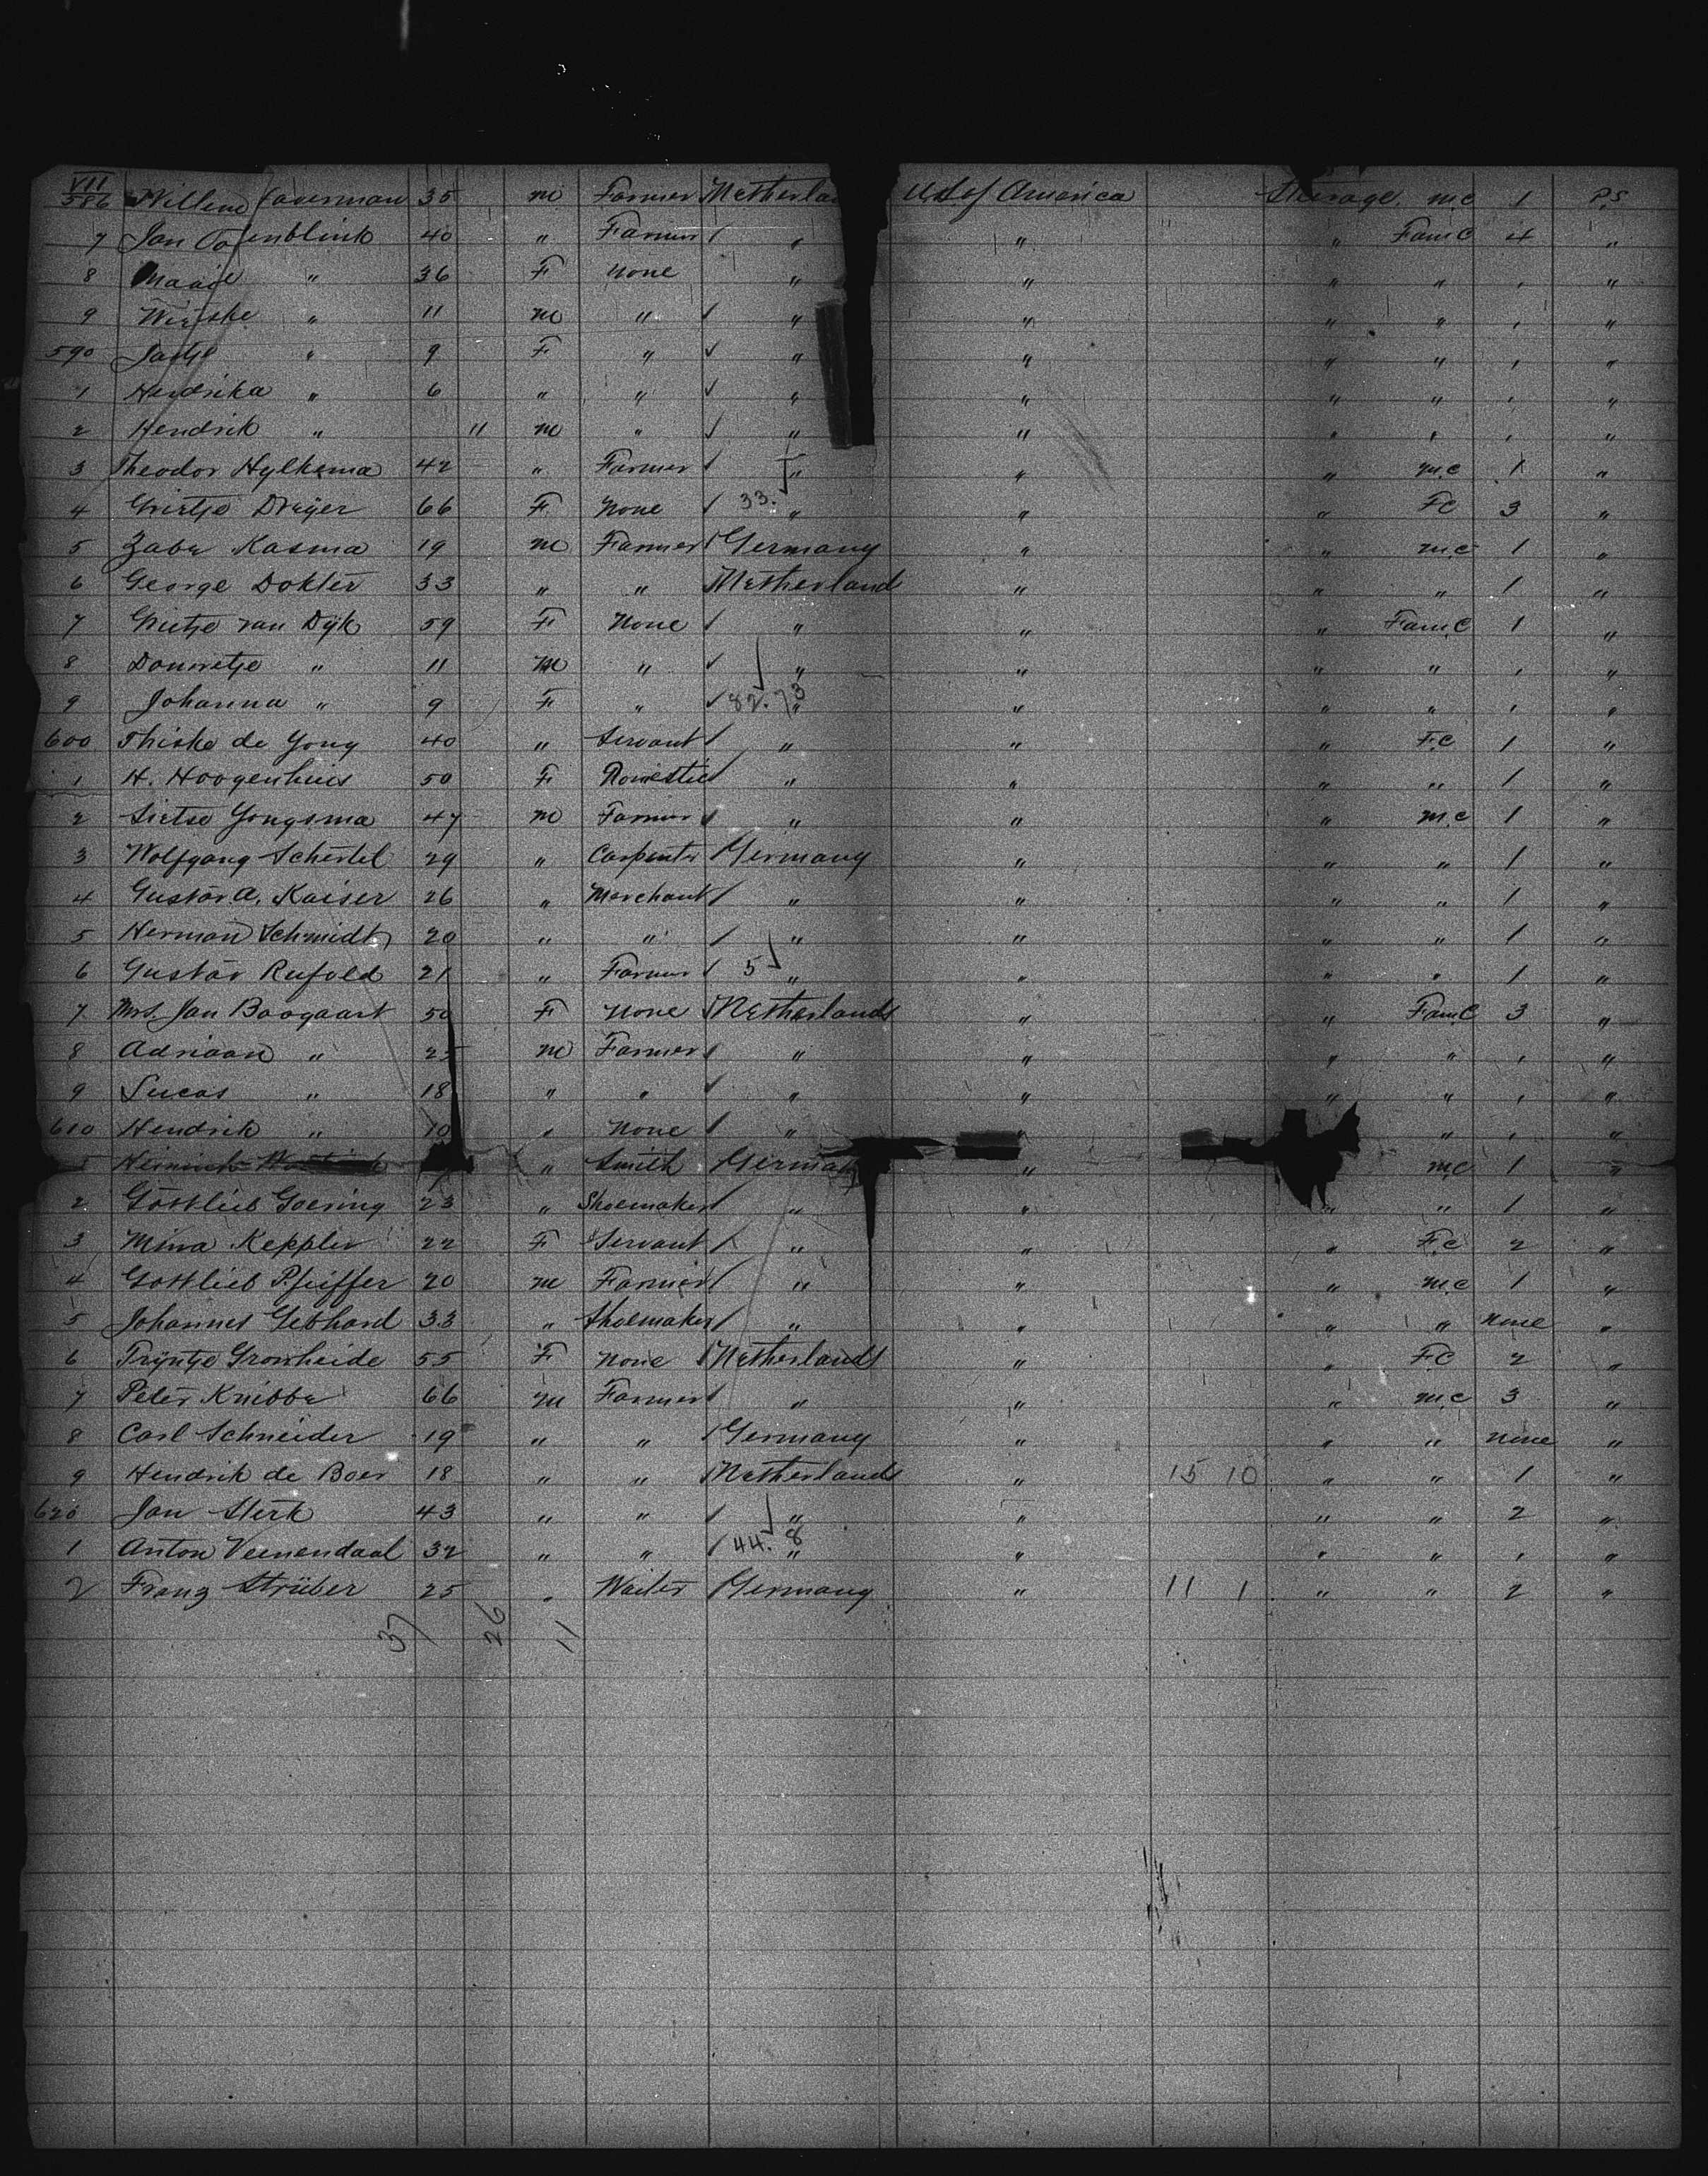 VII
586 Willem 35 m Farmer Netherla U.S of America Steerage m.c 1 P.S
7 Jan 40 " Farmer " " " Fam.C 4 "
8 Maaije " 36 F None " " " " , "
9 Wietske " 11 m " " " " " , "
590 Jantje " 9 F " " " " " , "
1 Hendrika " 6 " " " " " " , "
2 Hendrik " 11 m " " " " " , "
3 Theodor Hylkema 42 " Farmer " " " m.c 1 "
4 Grietje Dreyer 66 F None 33. " " " FC 3 "
5 Kasma 19 m Farmer Germany " " m.c 1 "
6 George Dokter 33 " " Netherland " " " 1 "
7 Grietje van Dyk 59 F None " " " Fam.C 1 "
8 " 11 m " " " " " , "
9 Johanna " 9 F " 82. 3 " " " " , "
600 Thiske de Yong 40 " Servant " " " F.C 1 "
1 H. Hoogenhuis 50 F Domestic " " " " 1 "
2 Sietse Yongsma 47 m Farmer " " " m.c 1 "
3 Wolfgang Schertel 29 " Carpenter Germany " " " 1 "
4 Gustav A. Kaiser 26 " Merchant " " " " 1 "
5 Herman Schmidt 20 " " " " " " 1 "
6 Gustav Rufold 21 " Farmer 5 " " " " 1 "
7 Mrs. Jan Boogaart 50 F None Netherlands " " Fam.C 3 "
8 Adriaan " 25 m Farmer " " " " , "
9 Lucas " 18 " " " " " " , "
610 Hendrik " 10 " None " " " , "
Heinrich " Smith German " m.c 1 "
2 Gottlieb Goering 23 " Shoemaker " " " " 1 "
3 Mina Keppler 22 F Servant " " " F.C 2 "
4 Gottlieb Pfeiffer 20 m Farmer " " " m.c 1 "
5 Johannes Gebhard 33 " Shoemaker " " " " None "
6 Tryntje Growheide 55 F None Netherlands " " FC 2 "
7 Peter Knibbe 66 m Farmer " " " m.c 3 "
8 Carl Schneider 19 " " Germany " " " None "
9 Hendrik de Boer 18 " " Netherlands " 15 10 " " 1 "
620 Jan Sterk 43 " " " " " " 2 "
1 Anton Veenendaal 32 " " 44. 8 " " " " , "
2 Franz Strüber 25 " Waiter Germany " 11 1 " " 2 "
37 26 11